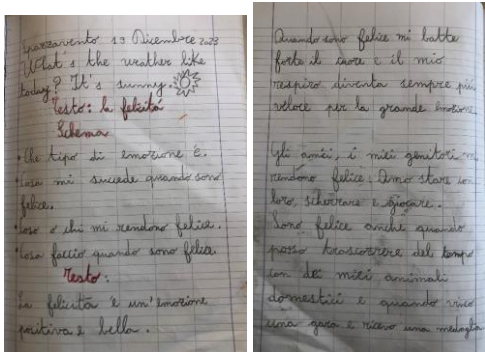 Sparzavento 13 Dicembre 2023
What's the wrather like
today? It's sunny.
Testo: la felicitá
Schema
• Che tipo di emozione è.
• Cosa mi succede quando sono
felice.
• Cosa o chi mi rendono felice.
• Cosa faccio quando sono felice.
Testo:
La felicità è un'emozione
positiva e bella.
Quando sono felice mi batte
forte il cuore e il mio
respiro diventa sempre più
veloce per la grande emozione
Gli amici, i miei genitori mi
rendono felice. Amo stare con
loro, scherzare e giocare.
Sono felice anche quando
posso trascorrere del tempo
con dei miei animali
domestici e quando vinco
una gara e ricevo una medaglia